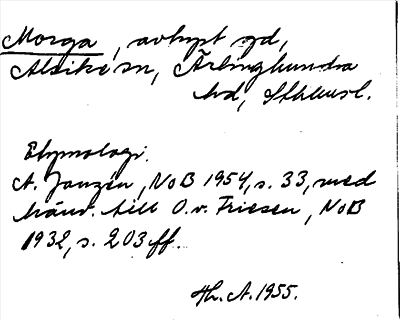 Morga, avhyst gd,
Alsike sn, Ärlinghundra
hd, Sthlmsl.
Etymologi.
A. Janzén, NoB 1954, s. 33, med
hänv. till O. v. Friesen, NoB
1932, s. 203 ff.
Th. A. 1955.